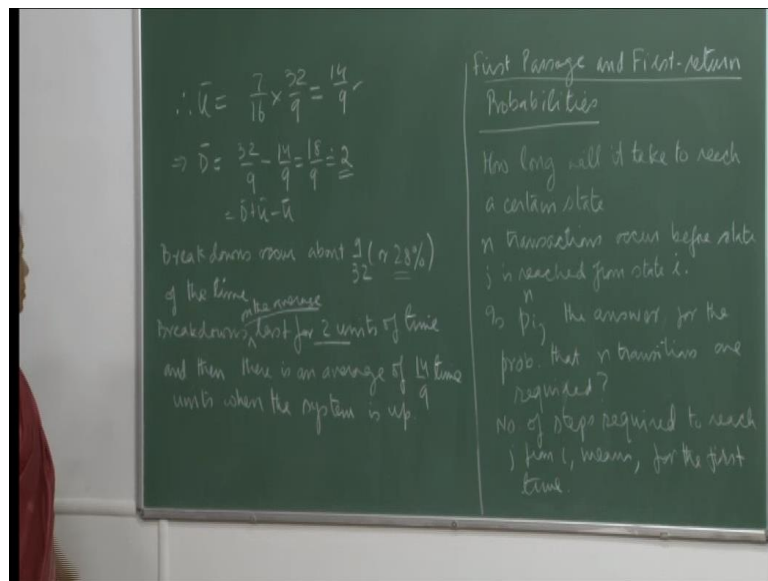 ∴ Ū = 7/16 × 32/9 = 14/9
⇒ D̄ = 32/9 − 14/9 = 18/9 = 2
= D̄ + Ū − Ū
Breakdowns occur about 9/32 (or 28%)
of the time
on the average
Breakdowns, last for 2 units of time
and then there is an average of 14/9 time
units when the system is up.
First Passage and First-return
Probabilities
How long will it take to reach
a certain state
n transactions occur before state
j is reached from state i.
Is pᵢⱼⁿ the answer, for the
prob. that n transitions are
required?
No. of steps required to reach
j from i, means, for the first
time.